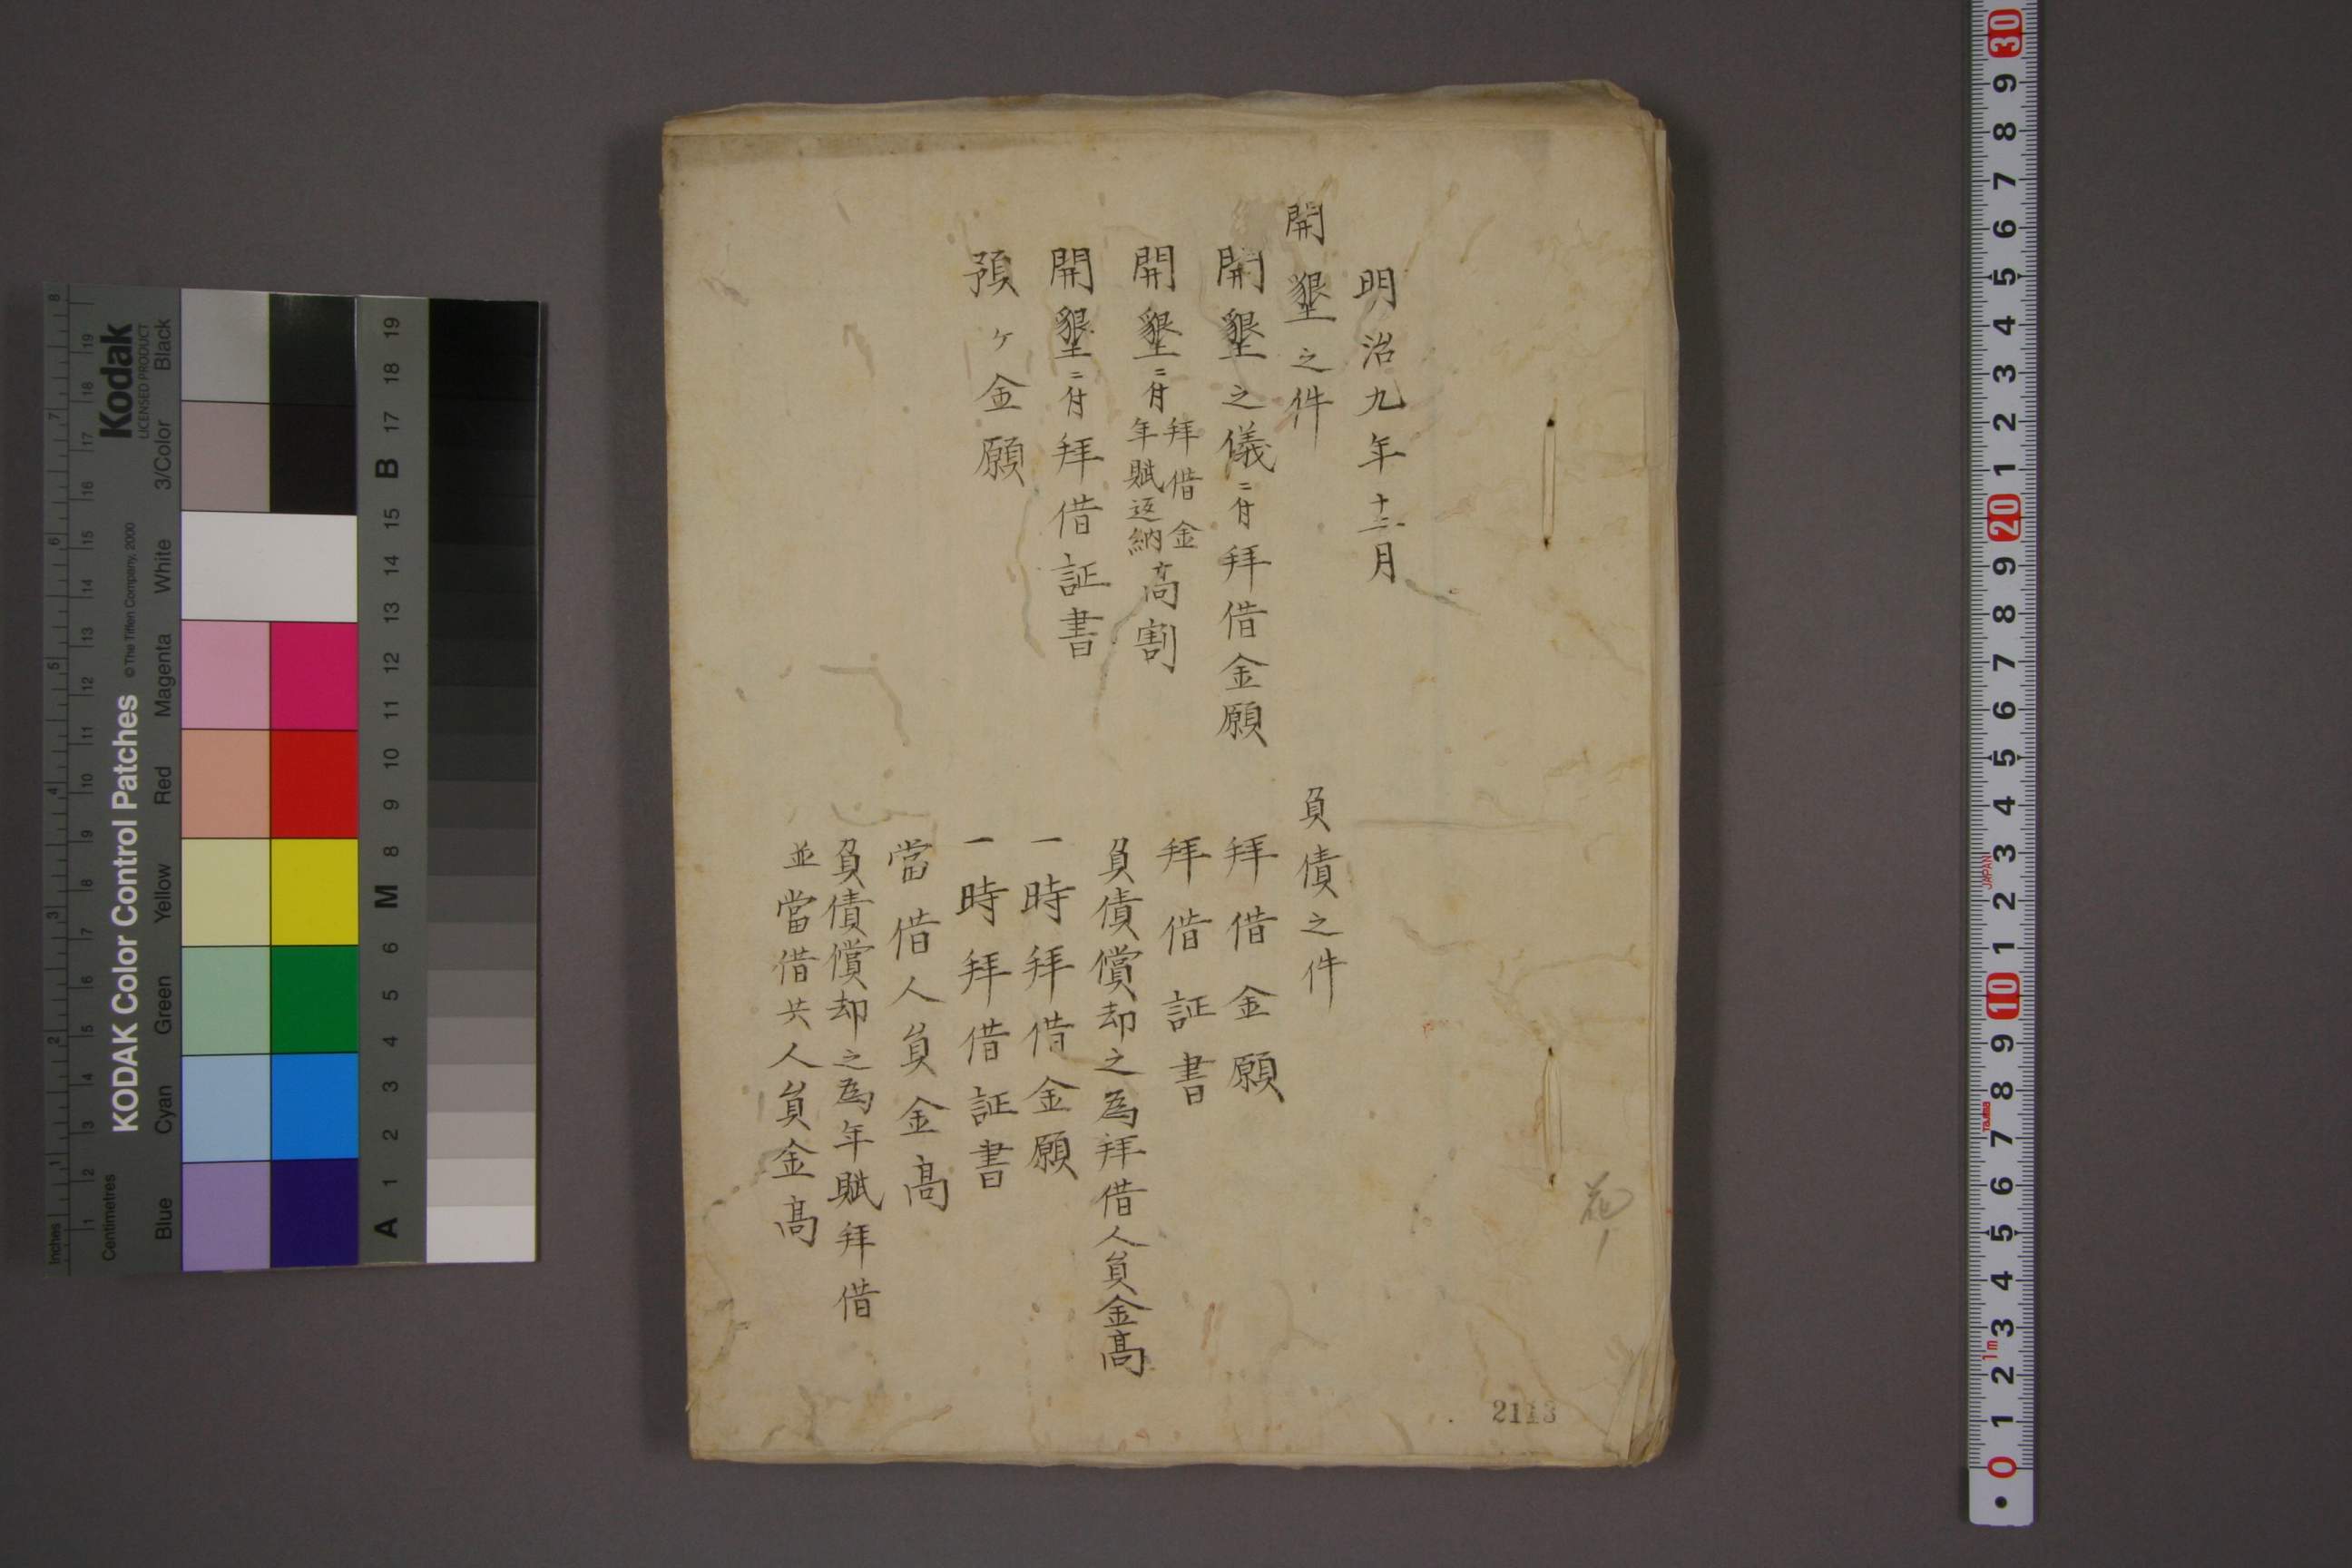 明治九年十二月
開墾之件
開墾之儀ニ付拝借金願
開墾ニ付拝借金年賦返納高割
開墾ニ付拝借証書
預ヶ金願
負債之件
拝借金願
拝借証書
負債償却之為拝借人負金高
一時拝借金願
一時拝借証書
當借人負金高
負債償却之為年賦拝借
並當借共人負金高
花
2113
KODAK Color Control Patches
© The Tiffen Company, 2000
Kodak
LICENSED PRODUCT
Inches
Centimetres
Blue
Cyan
Green
Yellow
Red
Magenta
White
3/Color
Black
A 1 2 3 4 5 6 M 8 9 10 11 12 13 14 15 B 17 18 19
30 9 8 7 6 5 4 3 2 1 20 9 8 7 6 5 4 3 2 1 10 9 8 7 6 5 4 3 2 1 0
JAPAN
Tajima
1m